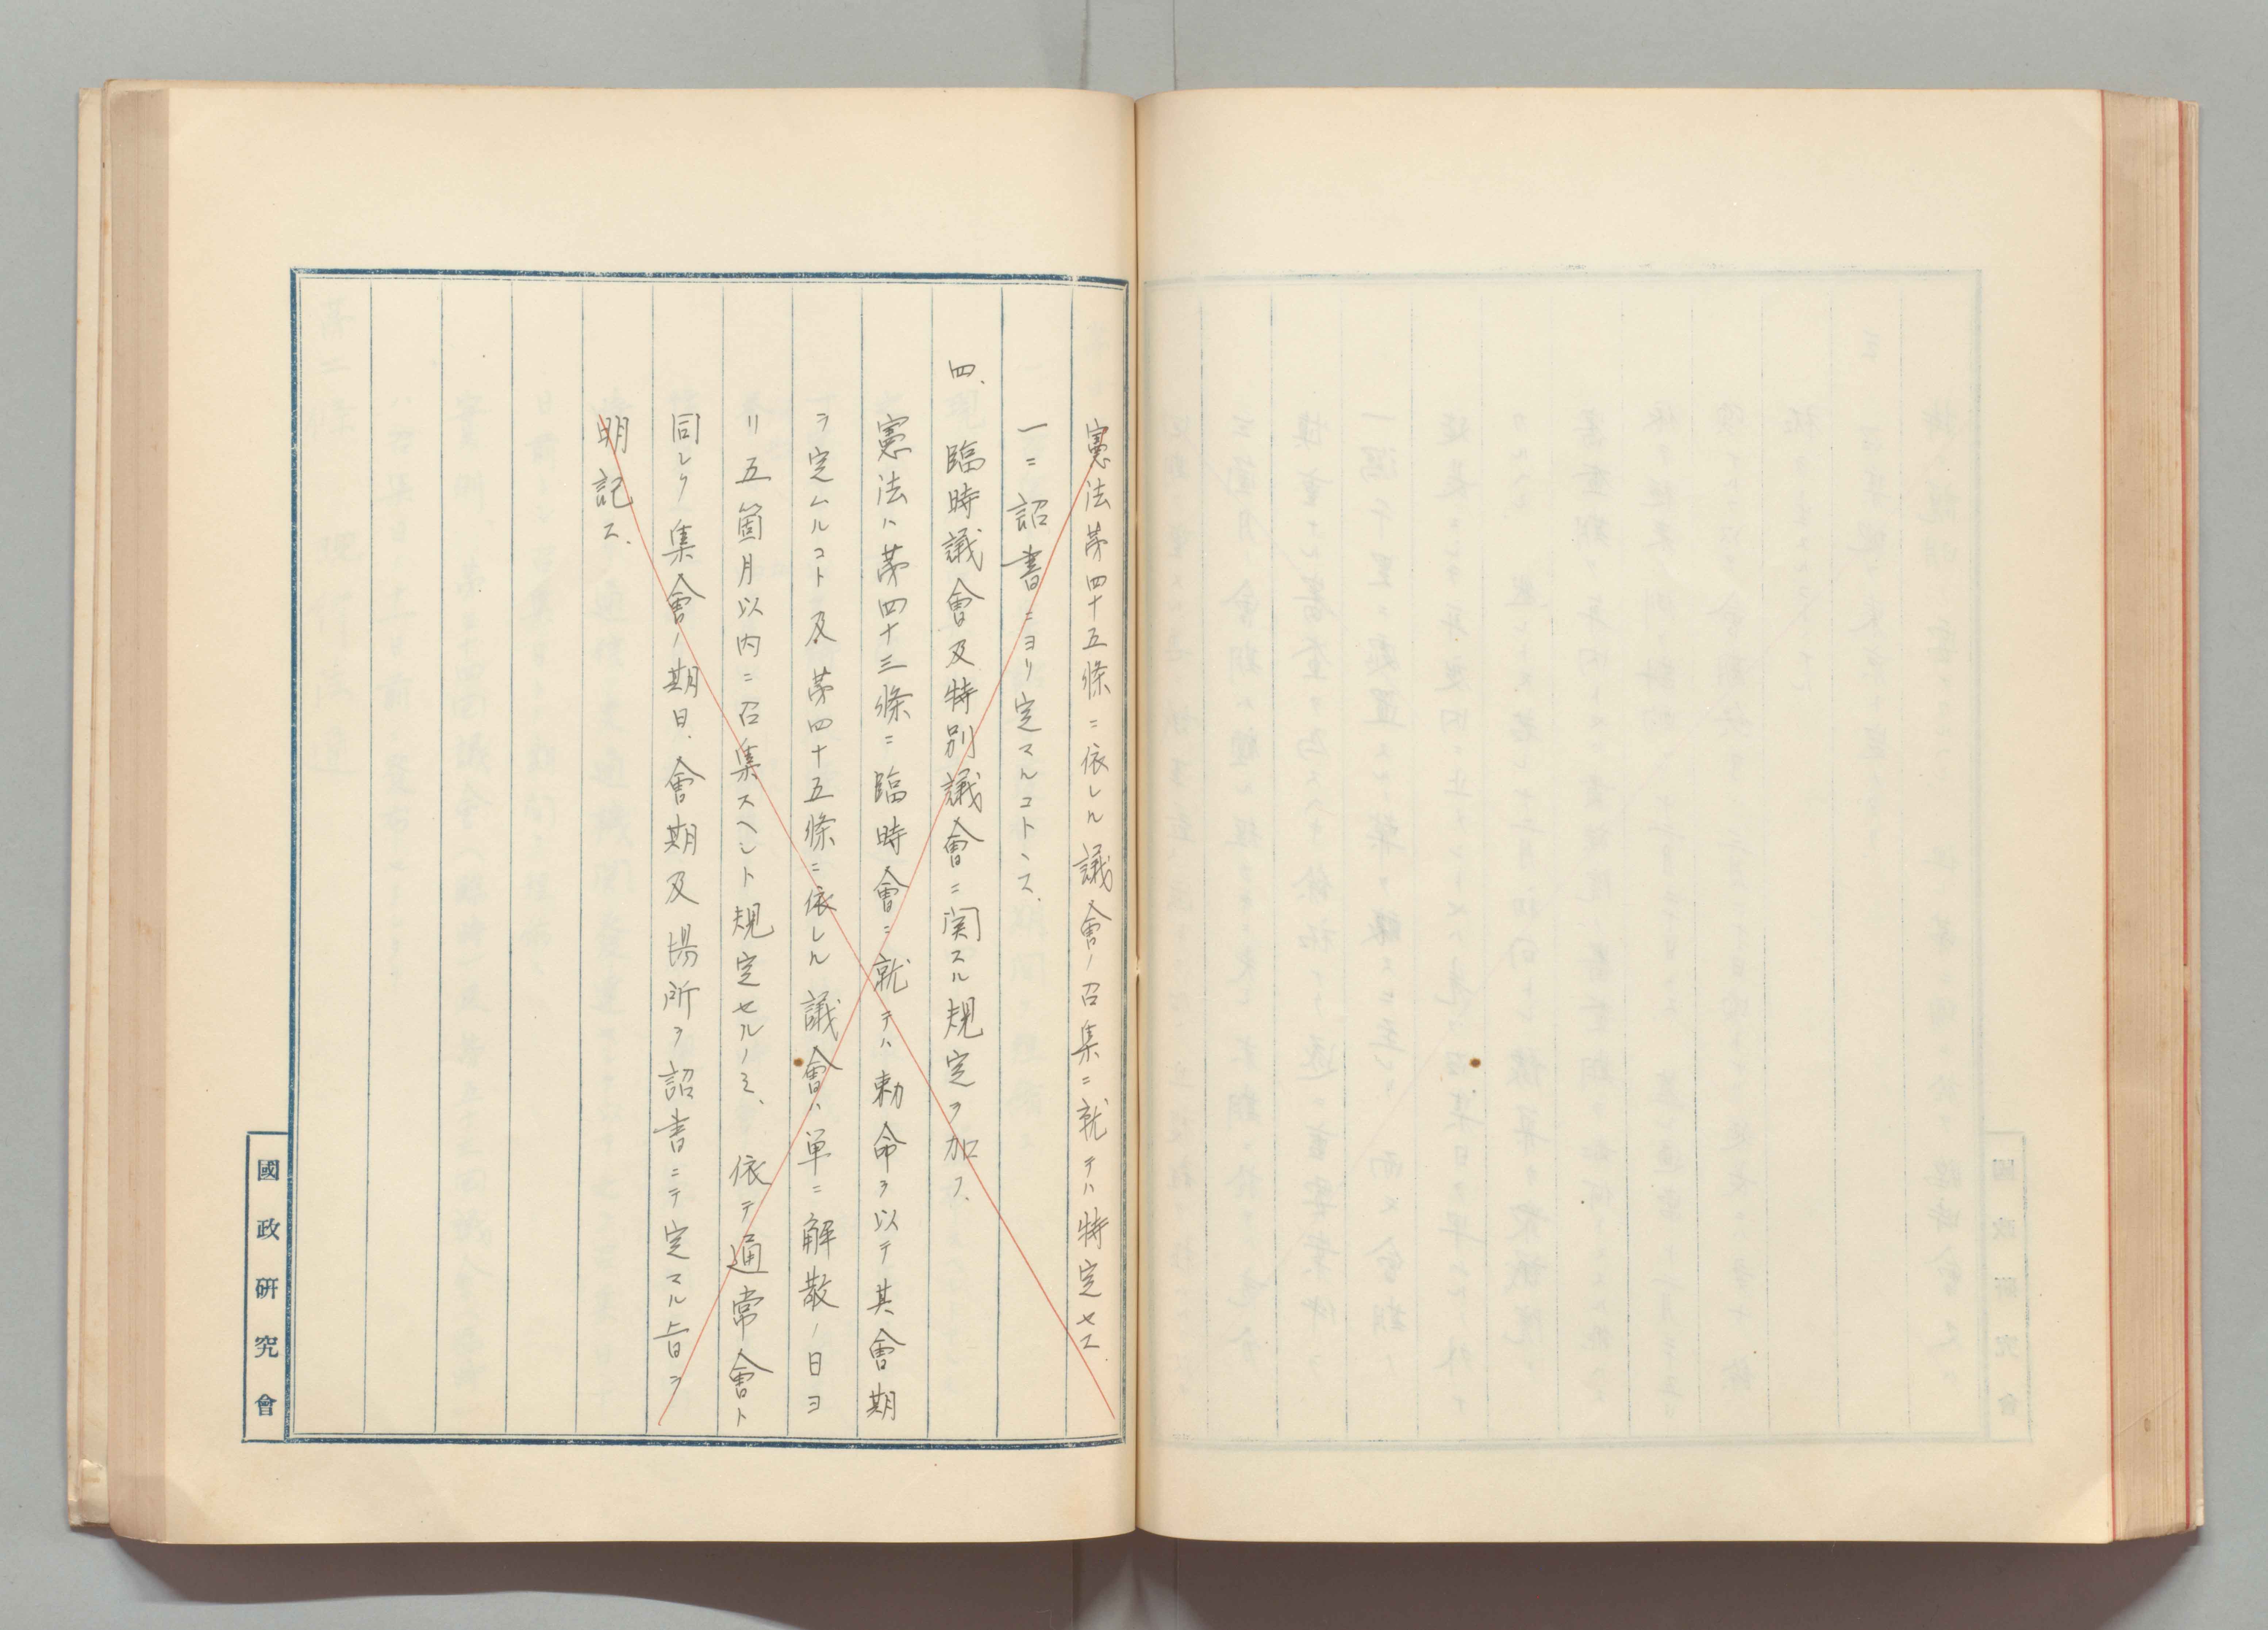 憲法第四十五條ニ依レル議會ノ召集ニ就テハ特定セス.
一ニ詔書ニヨリ定マルコトヽス.
四、臨時議會及特別議會ニ関スル規定ヲ加フ.
憲法ハ第四十三條ニ臨時會ニ就テハ勅命ヲ以テ其會期
ヲ定ムルコト及第四十五條ニ依レル議會ハ単ニ解散ノ日ヨ
リ五箇月以内ニ召集スヘシト規定セルノミ、依テ通常會ト
同シク集會ノ期日、會期及場所ヲ詔書ニテ定マル旨ヲ
明記ス.
國政研究會